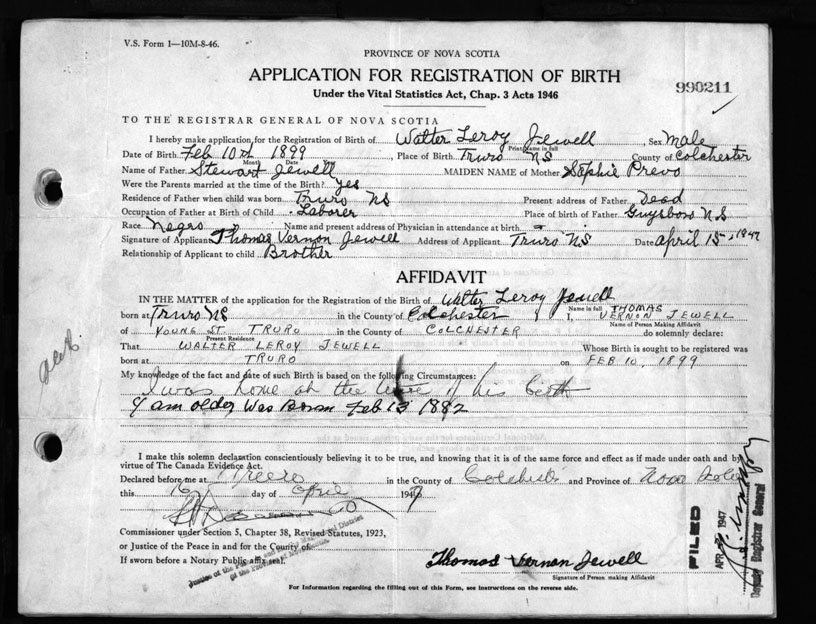 V.S. Form 1—10M-8-46.
PROVINCE OF NOVA SCOTIA
APPLICATION FOR REGISTRATION OF BIRTH
990211
Under the Vital Statistics Act, Chap. 3 Acts 1946
TO THE REGISTRAR GENERAL OF NOVA SCOTIA
I hereby make application for the Registration of Birth of Walter Leroy Jewell Sex Male
Print Name in full
Date of Birth Feb 10th 1899, Place of Birth Truro NS County of Colchester
Month Date Year
Name of Father Stewart Jewell MAIDEN NAME of Mother Sophie Prevo
Were the Parents married at the time of the Birth? Yes
Residence of Father when child was born Truro NS Present address of Father Dead
Occupation of Father at Birth of Child Laborer Place of birth of Father Guysboro N.S
Race Negro Name and present address of Physician in attendance at birth
Signature of Applicant Thomas Vernon Jewell Address of Applicant Truro NS Date April 15, 1947
Relationship of Applicant to child Brother
AFFIDAVIT
IN THE MATTER of the application for the Registration of the Birth of Walter Leroy Jewell
Name in full
born at Truro NS in the County of Colchester I, THOMAS VERNON JEWELL
Name of Person Making Affidavit
of YOUNG ST. TRURO in the County of COLCHESTER do solemnly declare:
Present Residence
That WALTER LEROY JEWELL Whose Birth is sought to be registered was
born at TRURO on FEB 10, 1899
My knowledge of the fact and date of such Birth is based on the following Circumstances:
I was home at the time of his birth
I am older Was Born Feb 13 1882
I make this solemn declaration conscientiously believing it to be true, and knowing that it is of the same force and effect as if made under oath and by
virtue of The Canada Evidence Act.
Declared before me at Truro in the County of Colchester and Province of Nova Scotia
this 16 day of April 1947
Commissioner under Section 5, Chapter 38, Revised Statutes, 1923,
or Justice of the Peace in and for the County of
If sworn before a Notary Public affix seal.
Thomas Vernon Jewell
Signature of Person making Affidavit
For Information regarding the filling out of this Form, see instructions on the reverse side.
FILED
APR 1947
Deputy Registrar General